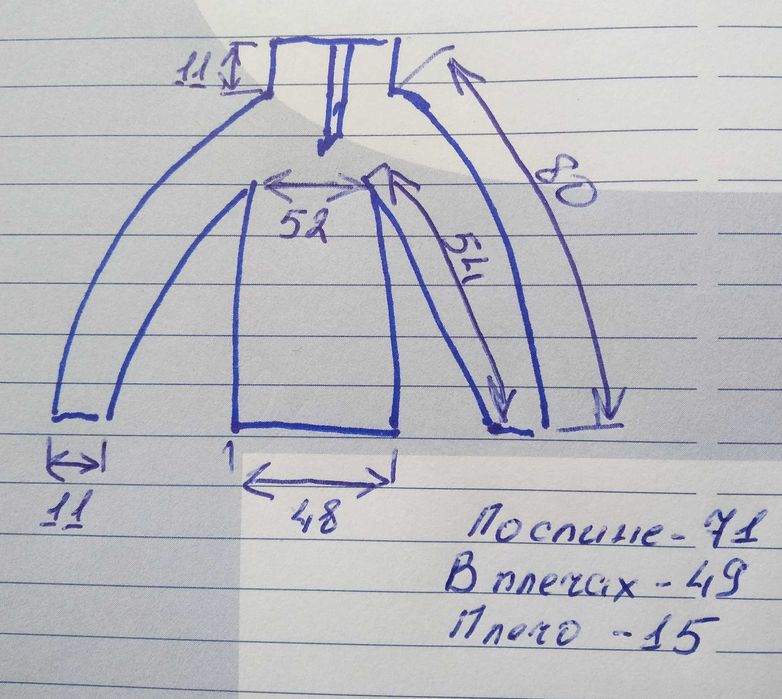 11
80
52
54
11
48
По спине - 71
В плечах - 49
Плечо - 15